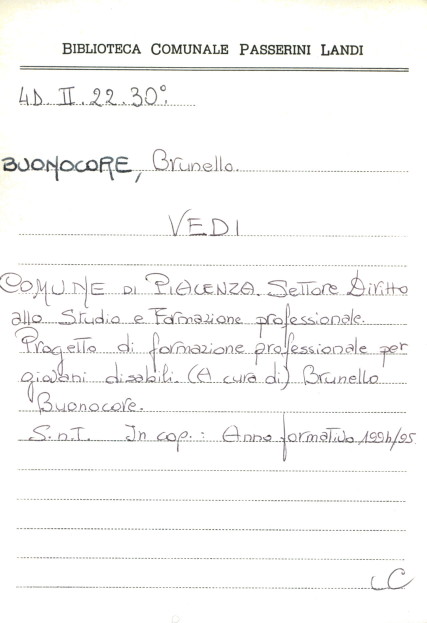 BIBLIOTECA COMUNALE PASSERINI LANDI
4D. II. 22. 30°.
BUONOCORE, Brunello.
VEDI
COMUNE DI PIACENZA. Settore Diritto
allo Studio e Formazione professionale.
Progetto di formazione professionale per
giovani disabili. (A cura di) Brunello
Buonocore.
S.n.T. In cop.: Anno formativo 1994/95